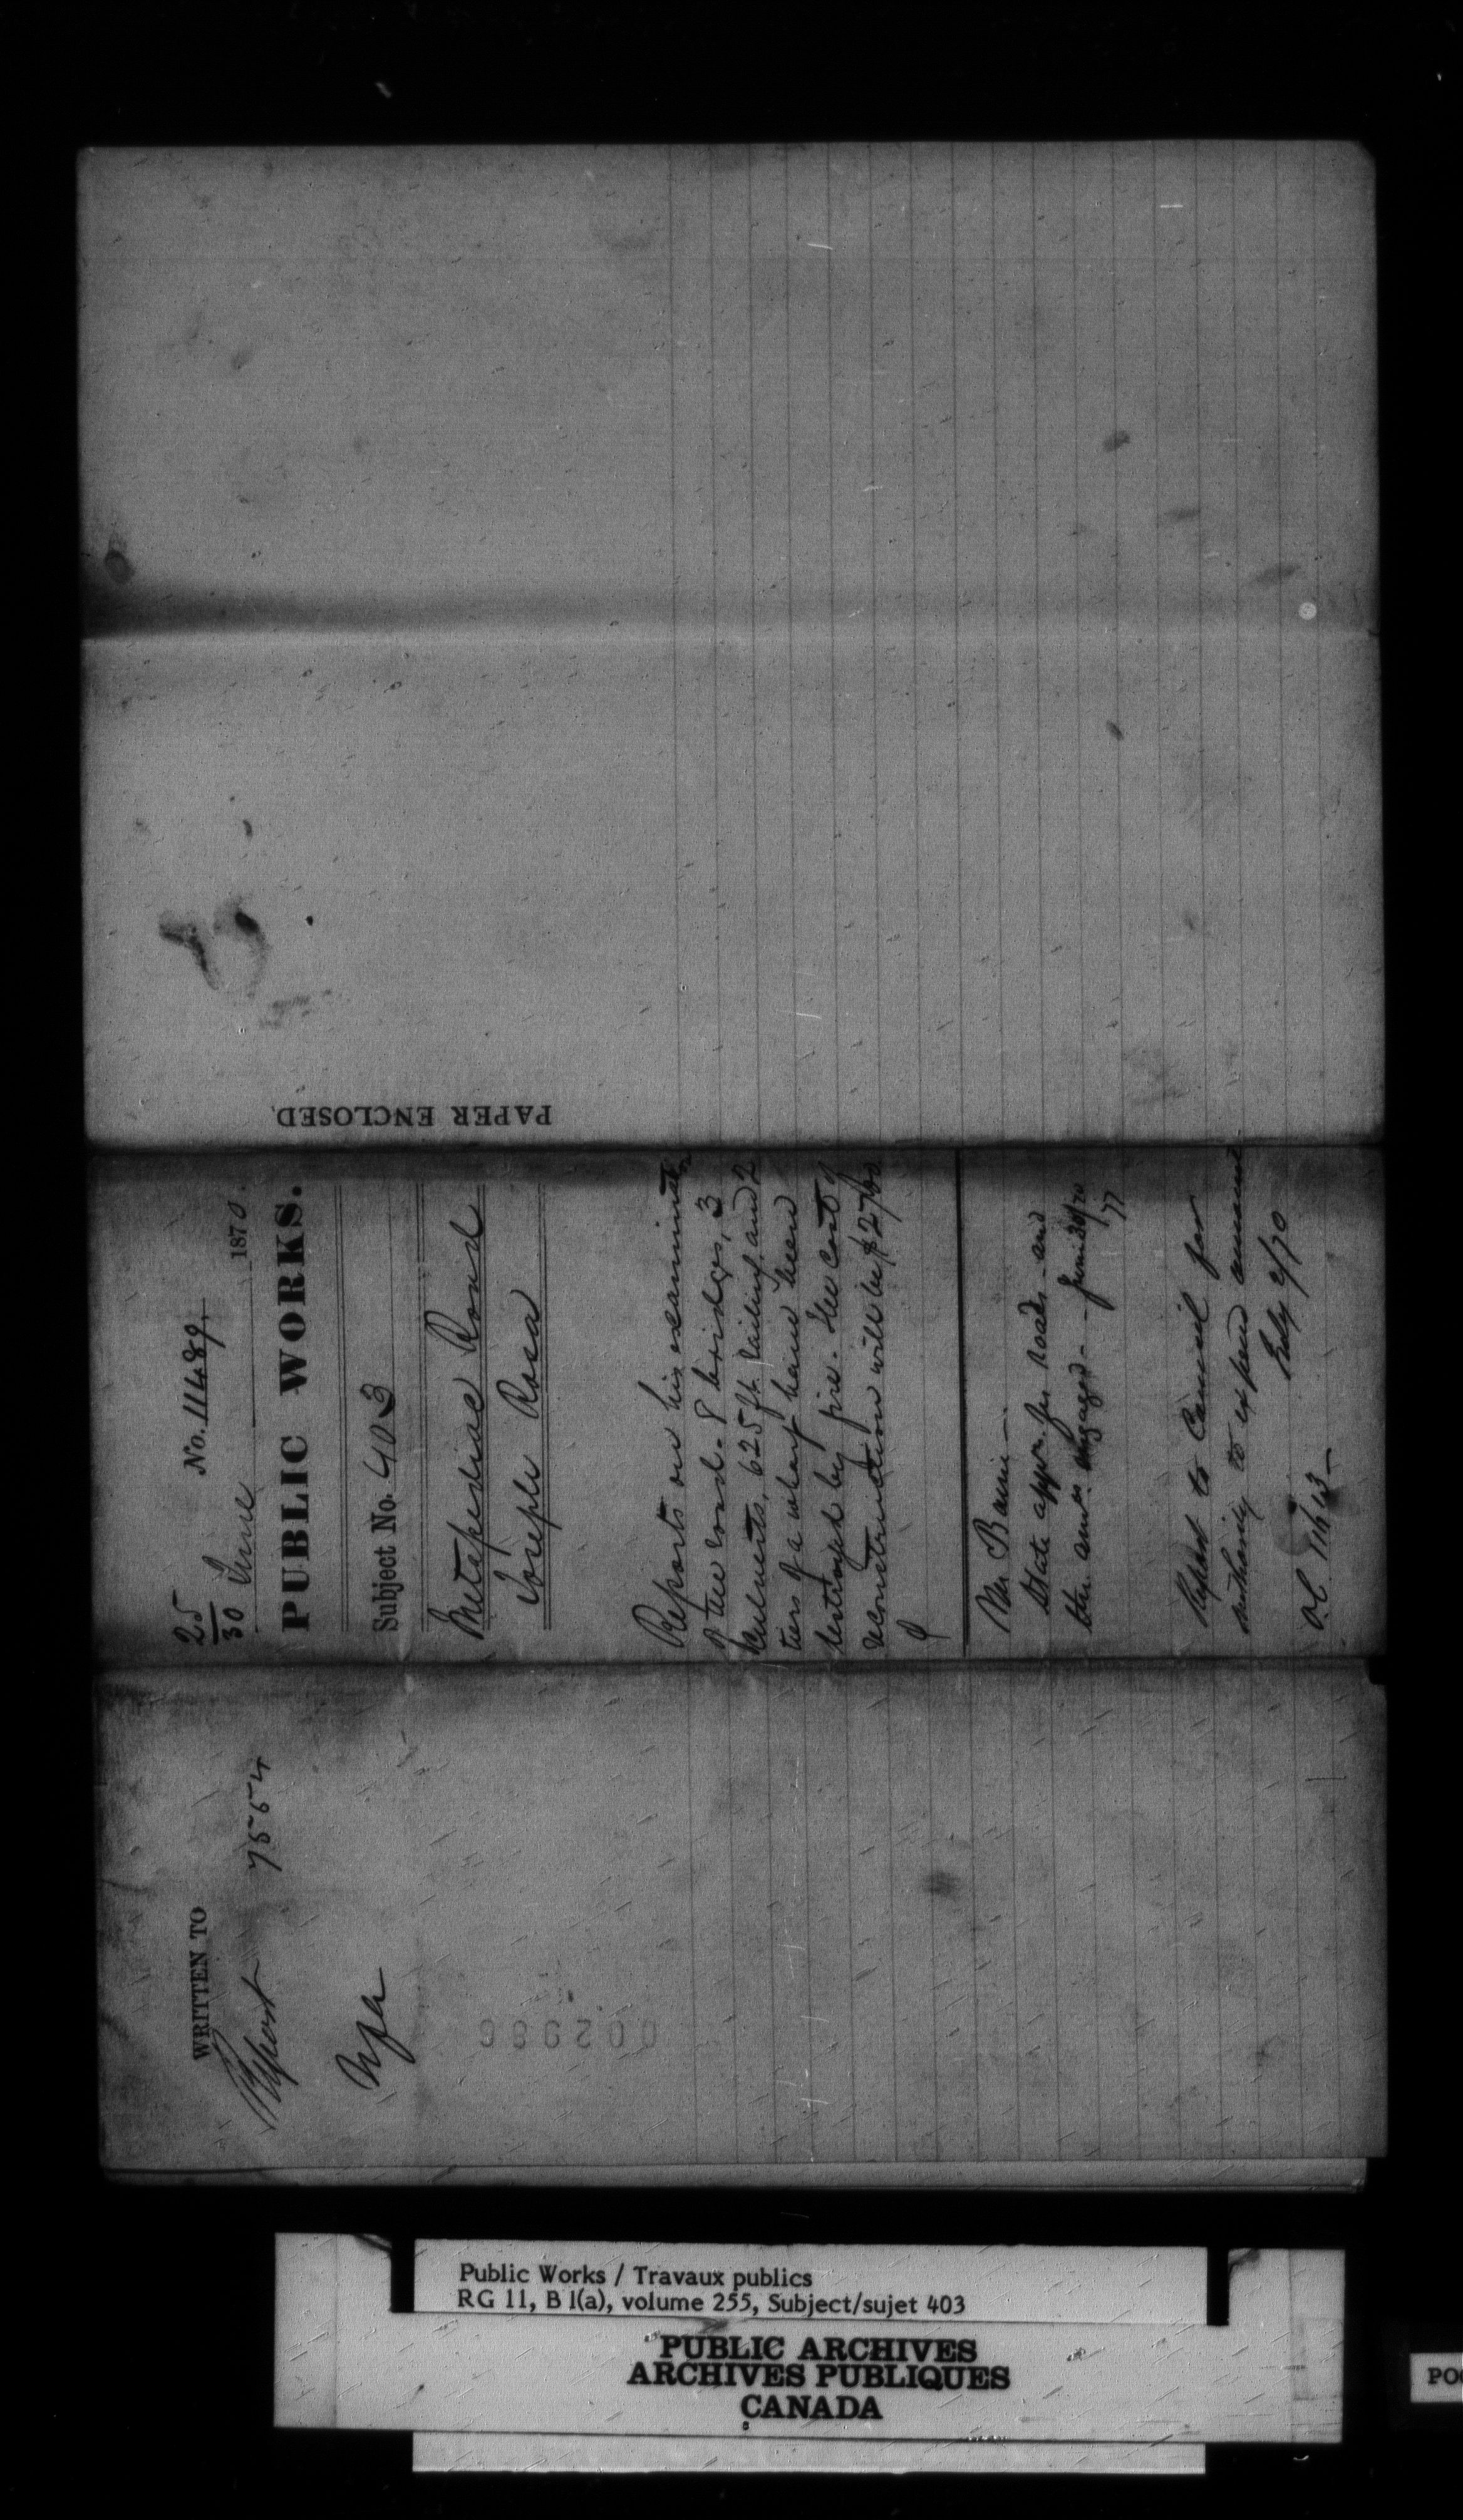 PAPER ENCLOSED.
25
30 June 1870.
No. 11489.
PUBLIC WORKS.
Subject No. 403
Metapediac Road
Joseph Rosa
Reports on his examination
of the road. 8 bridges, 3
Culverts, 625 ft railing and 2
tiers of a wharf have been
destroyed by fire. The cost of
reconstruction will be $2760
Mr Baine—
State appn. for roads and
the am engaged— June 30/70
Report to Council for
authority to expend amount
July 2/70
OC 11613—
WRITTEN TO
Report 7554
002986
Public Works / Travaux publics
RG 11, B 1(a), volume 255, Subject/sujet 403
PUBLIC ARCHIVES
ARCHIVES PUBLIQUES
CANADA